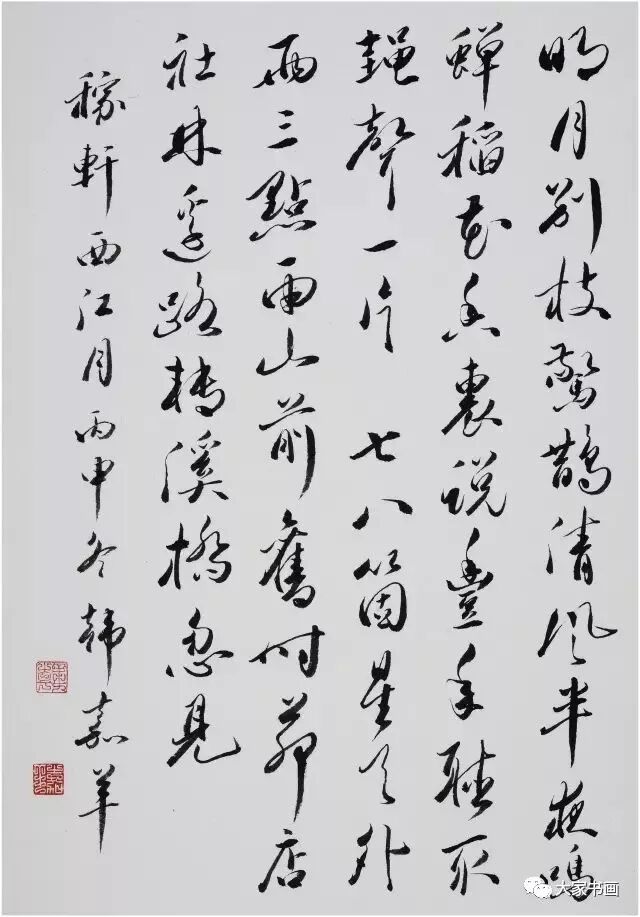 明月别枝驚鵲清风半夜鳴
蟬稻花香裏説豐年聽取
蛙聲一片 七八箇星天外
兩三點雨山前舊時茆店
社林邊路轉溪橋忽見
稼軒西江月丙申冬韩嘉羊
大家书画